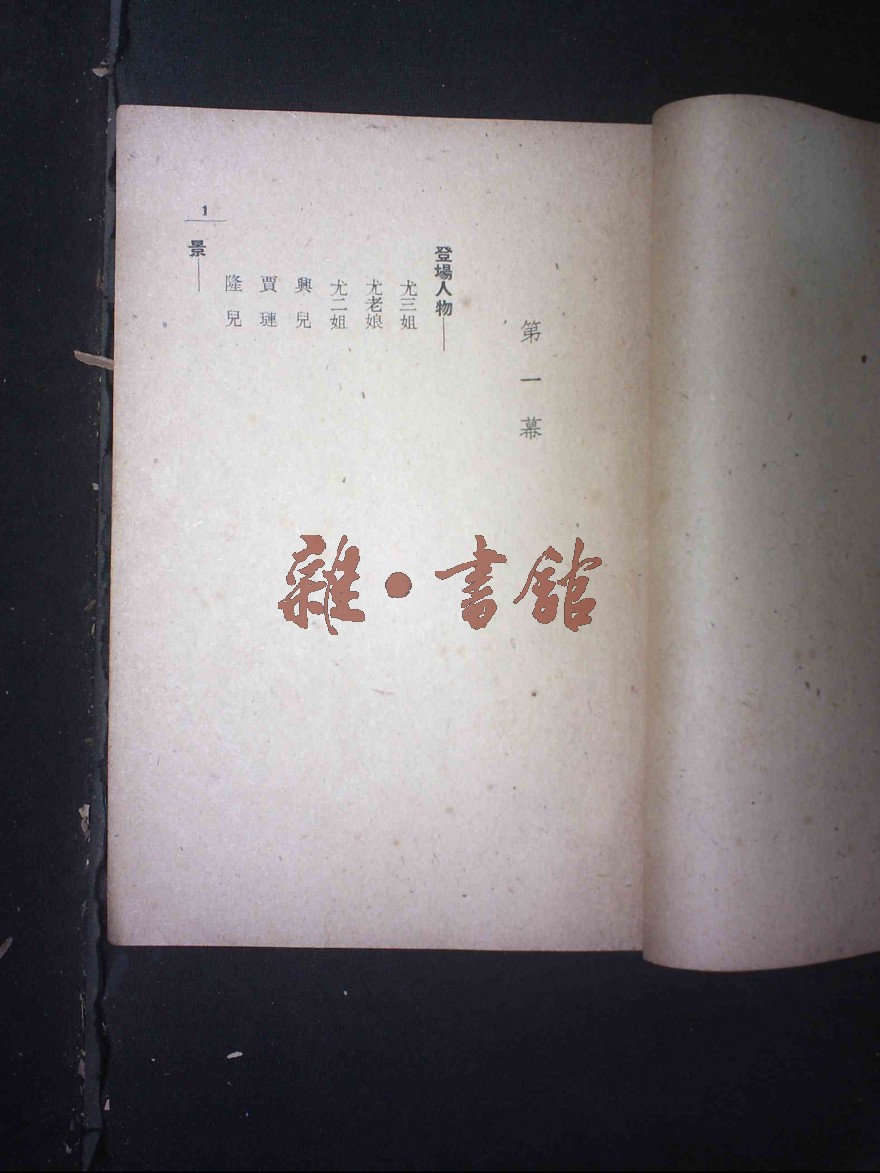 第一幕
登場人物——
尤三姐
尤老娘
尤二姐
興兒
賈璉
隆兒
景——
1
雜·書館